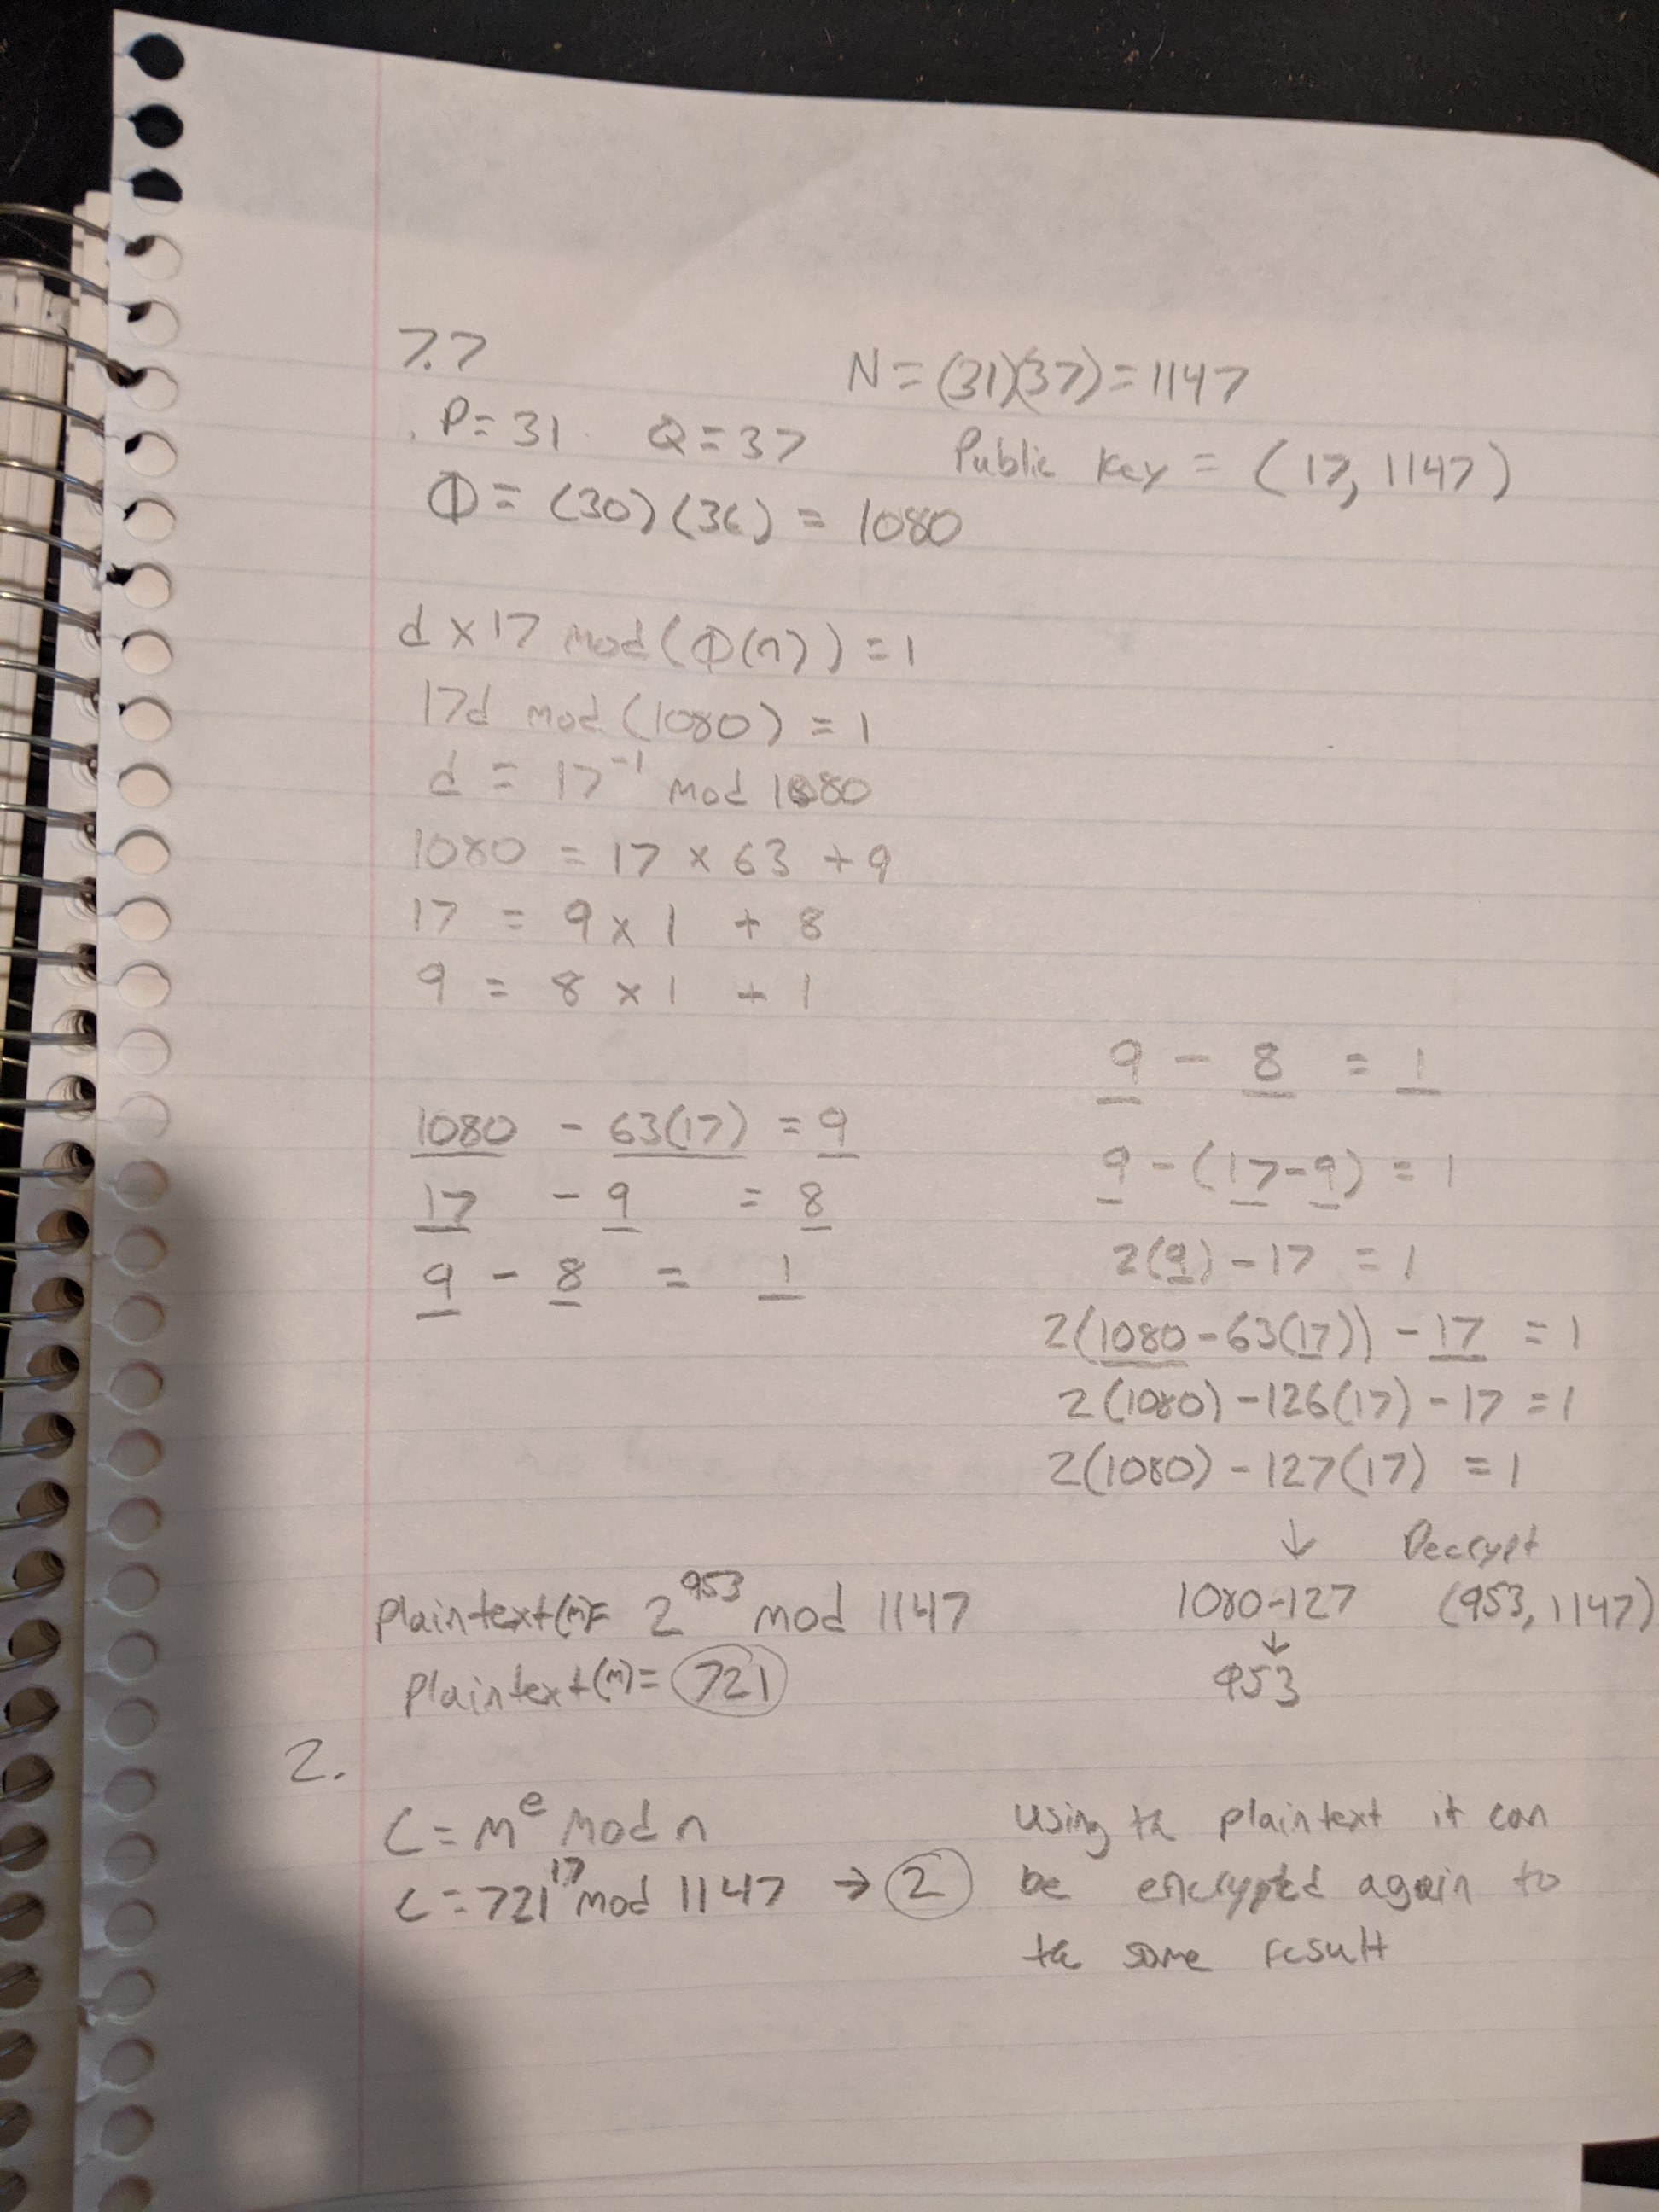 7.7
N = (31)(37) = 1147
P = 31 Q = 37
Public Key = (17, 1147)
Φ = (30)(36) = 1080
d × 17 mod(Φ(n)) = 1
17d mod(1080) = 1
d = 17⁻¹ mod 1080
1080 = 17 × 63 + 9
17 = 9 × 1 + 8
9 = 8 × 1 + 1
1080 - 63(17) = 9
17 - 9 = 8
9 - 8 = 1
9 - 8 = 1
9 - (17-9) = 1
2(9) - 17 = 1
2(1080 - 63(17)) - 17 = 1
2(1080) - 126(17) - 17 = 1
2(1080) - 127(17) = 1
↓ Decrypt
1080-127 (953, 1147)
↓
953
plaintext(m)= 2⁹⁵³ mod 1147
plaintext(m)= 721
2.
C = mᵉ mod n
C = 721¹⁷ mod 1147 → 2
using the plaintext it can
be encrypted again to
the same result